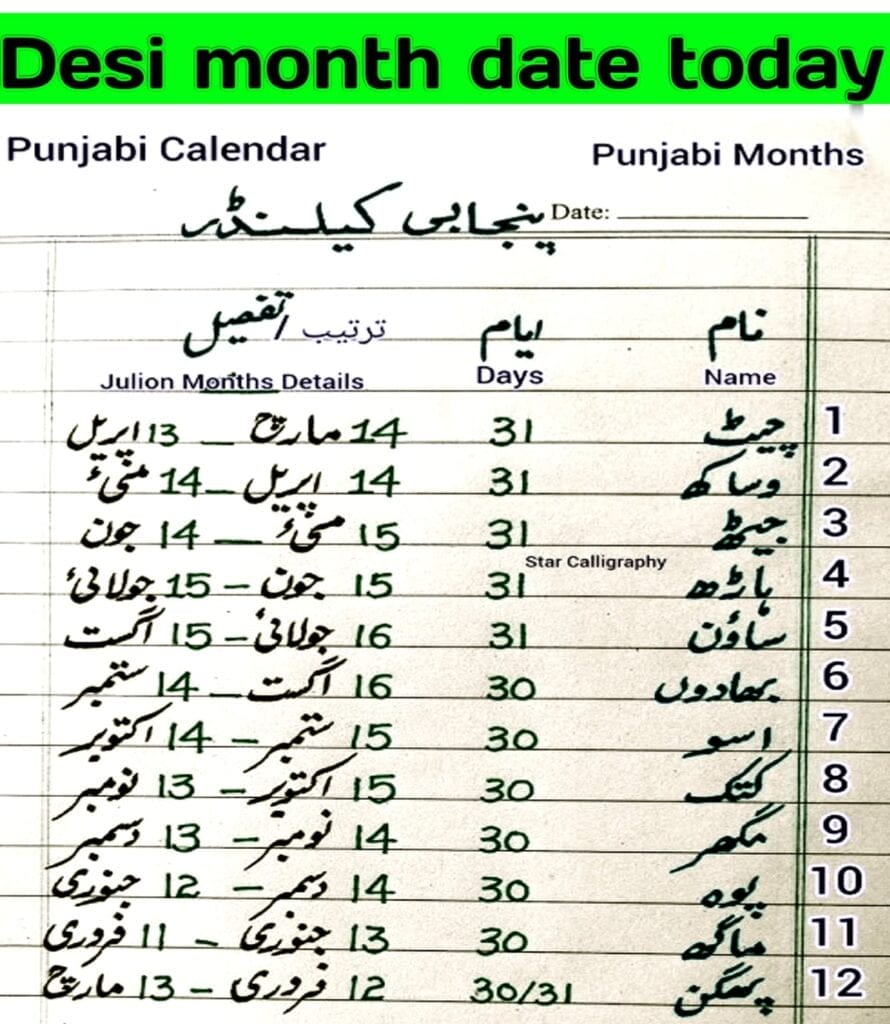 Desi month date today
Punjabi Calendar Punjabi Months
پنجابی کیلنڈر Date:
نام ایام ترتیب / تفصیل
Name Days Julion Months Details
1 چیٹ 31 14 مارچ – 13 اپریل
2 وساکھ 31 14 اپریل – 14 مئی
3 جیٹھ 31 15 مئی – 14 جون
Star Calligraphy
4 ہاڑھ 31 15 جون – 15 جولائی
5 ساؤن 31 16 جولائی – 15 اگست
6 بھادوں 30 16 اگست – 14 ستمبر
7 اسو 30 15 ستمبر – 14 اکتوبر
8 کتک 30 15 اکتوبر – 13 نومبر
9 مگھر 30 14 نومبر – 13 دسمبر
10 پوہ 30 14 دسمبر – 12 جنوری
11 ماگھ 30 13 جنوری – 11 فروری
12 پھگن 30/31 12 فروری – 13 مارچ